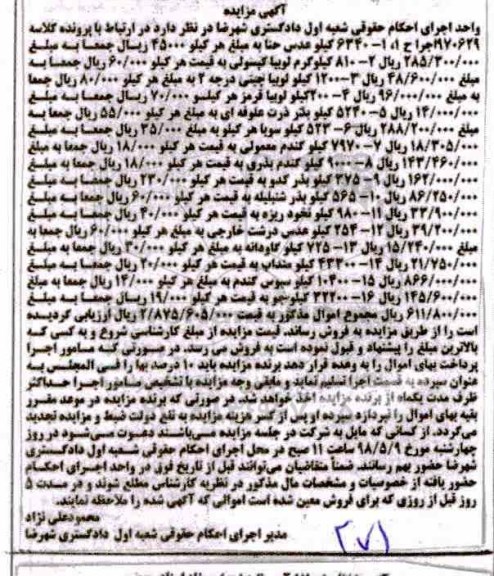 آگهی مزایده
واحد اجرای احکام حقوقی شعبه اول دادگستری شهرضا در نظر دارد در ارتباط با پرونده کلاسه
۹۷۰۶۲۹اجرا ح ۱، ۱- ۶۳۴۰ کیلو عدس حنا به مبلغ هر کیلو ۴۵۰۰۰ ریال جمعا به مبلغ
۲۸۵/۳۰۰/۰۰۰ ریال ۲- ۸۱۰ کیلوگرم لوبیا کپسولی به قیمت هر کیلو ۶۰/۰۰۰ ریال جمعا به
مبلغ ۴۸/۶۰۰/۰۰۰ ریال ۳-۱۲۰۰ کیلو لوبیا چیتی درجه ۲ به مبلغ هر کیلو ۸۰/۰۰۰ ریال جمعا
به مبلغ ۹۶/۰۰۰/۰۰۰ ریال ۴-۲۰۰کیلو لوبیا قرمز هر کیلو ۷۰/۰۰۰ ریال جمعا به مبلغ
۱۴/۰۰۰/۰۰۰ ریال ۵- ۵۲۴۰ کیلو بذر ذرت علوفه ای به مبلغ هر کیلو ۵۵/۰۰۰ ریال جمعا به
مبلغ ۲۸۸/۲۰۰/۰۰۰ ریال ۶- ۵۲۳ کیلو سویا هر کیلو به مبلغ ۳۵/۰۰۰ ریال جمعا به مبلغ
۱۸/۳۰۵/۰۰۰ ریال ۷- ۷۹۷۰ کیلو گندم معمولی به قیمت هر کیلو ۱۸/۰۰۰ ریال جمعا به مبلغ
۱۴۳/۴۶۰/۰۰۰ ریال ۸- ۹۰۰۰ کیلو گندم بذری به قیمت هر کیلو ۱۸/۰۰۰ ریال جمعا به مبلغ
۱۶۲/۰۰۰/۰۰۰ ریال ۹- ۳۷۵ کیلو بذر کدو به قیمت هر کیلو ۲۳۰/۰۰۰ ریال جمعا به مبلغ
۸۶/۲۵۰/۰۰۰ ریال ۱۰- ۵۶۵ کیلو بذر شنبلیله به قیمت هر کیلو ۶۰/۰۰۰ ریال جمعا به مبلغ
۳۳/۹۰۰/۰۰۰ ریال ۱۱- ۹۸۰ کیلو نخود ریزه به قیمت هر کیلو ۴۰/۰۰۰ ریال جمعا به مبلغ
۳۹/۲۰۰/۰۰۰ ریال ۱۲- ۲۵۴ کیلو عدس درشت خارجی به مبلغ هر کیلو ۶۰/۰۰۰ ریال جمعا به
مبلغ ۱۵/۲۴۰/۰۰۰ ریال ۱۳- ۷۲۵ کیلو گاودانه به مبلغ هر کیلو ۳۰/۰۰۰ ریال جمعا به مبلغ
۲۱/۷۵۰/۰۰۰ ریال ۱۴- ۴۳۳۰۰ کیلو منداب به قیمت هر کیلو ۲۰/۰۰۰ ریال جمعا به مبلغ
۸۶۶/۰۰۰/۰۰۰ ریال ۱۵- ۱۰۴۰۰ کیلو سبوس گندم به مبلغ هر کیلو ۱۴/۰۰۰ ریال جمعا به مبلغ
۱۴۵/۶۰۰/۰۰۰ ریال ۱۶- ۳۲۲۰۰ کیلو جو به قیمت هر کیلو ۱۹/۰۰۰ ریال جمعا به مبلغ
۶۱۱/۸۰۰/۰۰۰ ریال مجموع اموال مذکور به قیمت ۲/۸۷۵/۶۰۵/۰۰۰ ریال ارزیابی گردیده
است را از طریق مزایده به فروش رساند. قیمت مزایده از مبلغ کارشناسی شروع و به کسی که
بالاترین مبلغ را پیشنهاد و قبول نموده است به فروش می رسد. در صورتی که مامور اجرا
پرداخت بهای اموال را به وعده قرار دهد برنده مزایده باید ۱۰ درصد بها را فی المجلس به
عنوان سپرده به قسمت اجرا تسلیم نماید و مابقی وجه مزایده با تشخیص مامور اجرا حداکثر
ظرف مدت یکماه از برنده مزایده اخذ خواهد شد. در صورتی که برنده مزایده در موعد مقرر
بقیه بهای اموال را نپردازد سپرده او پس از کسر هزینه مزایده به نفع دولت ضبط و مزایده تجدید
می‌گردد. از کسانی که مایل به شرکت در جلسه مزایده می‌باشند دعوت می‌شود در روز
چهارشنبه مورخ ۹۸/۵/۹ ساعت ۱۱ صبح در محل اجرای احکام حقوقی شعبه اول دادگستری
شهرضا حضور بهم رسانند. ضمناً متقاضیان می‌توانند قبل از تاریخ فوق در واحد اجرای احکام
حضور یافته از خصوصیات و مشخصات مال مذکور در نظریه کارشناس مطلع شوند و در مدت ۵
روز قبل از روزی که برای فروش معین شده است اموالی که آگهی شده را ملاحظه نمایند.
محمودعلی نژاد
مدیر اجرای احکام حقوقی شعبه اول دادگستری شهرضا